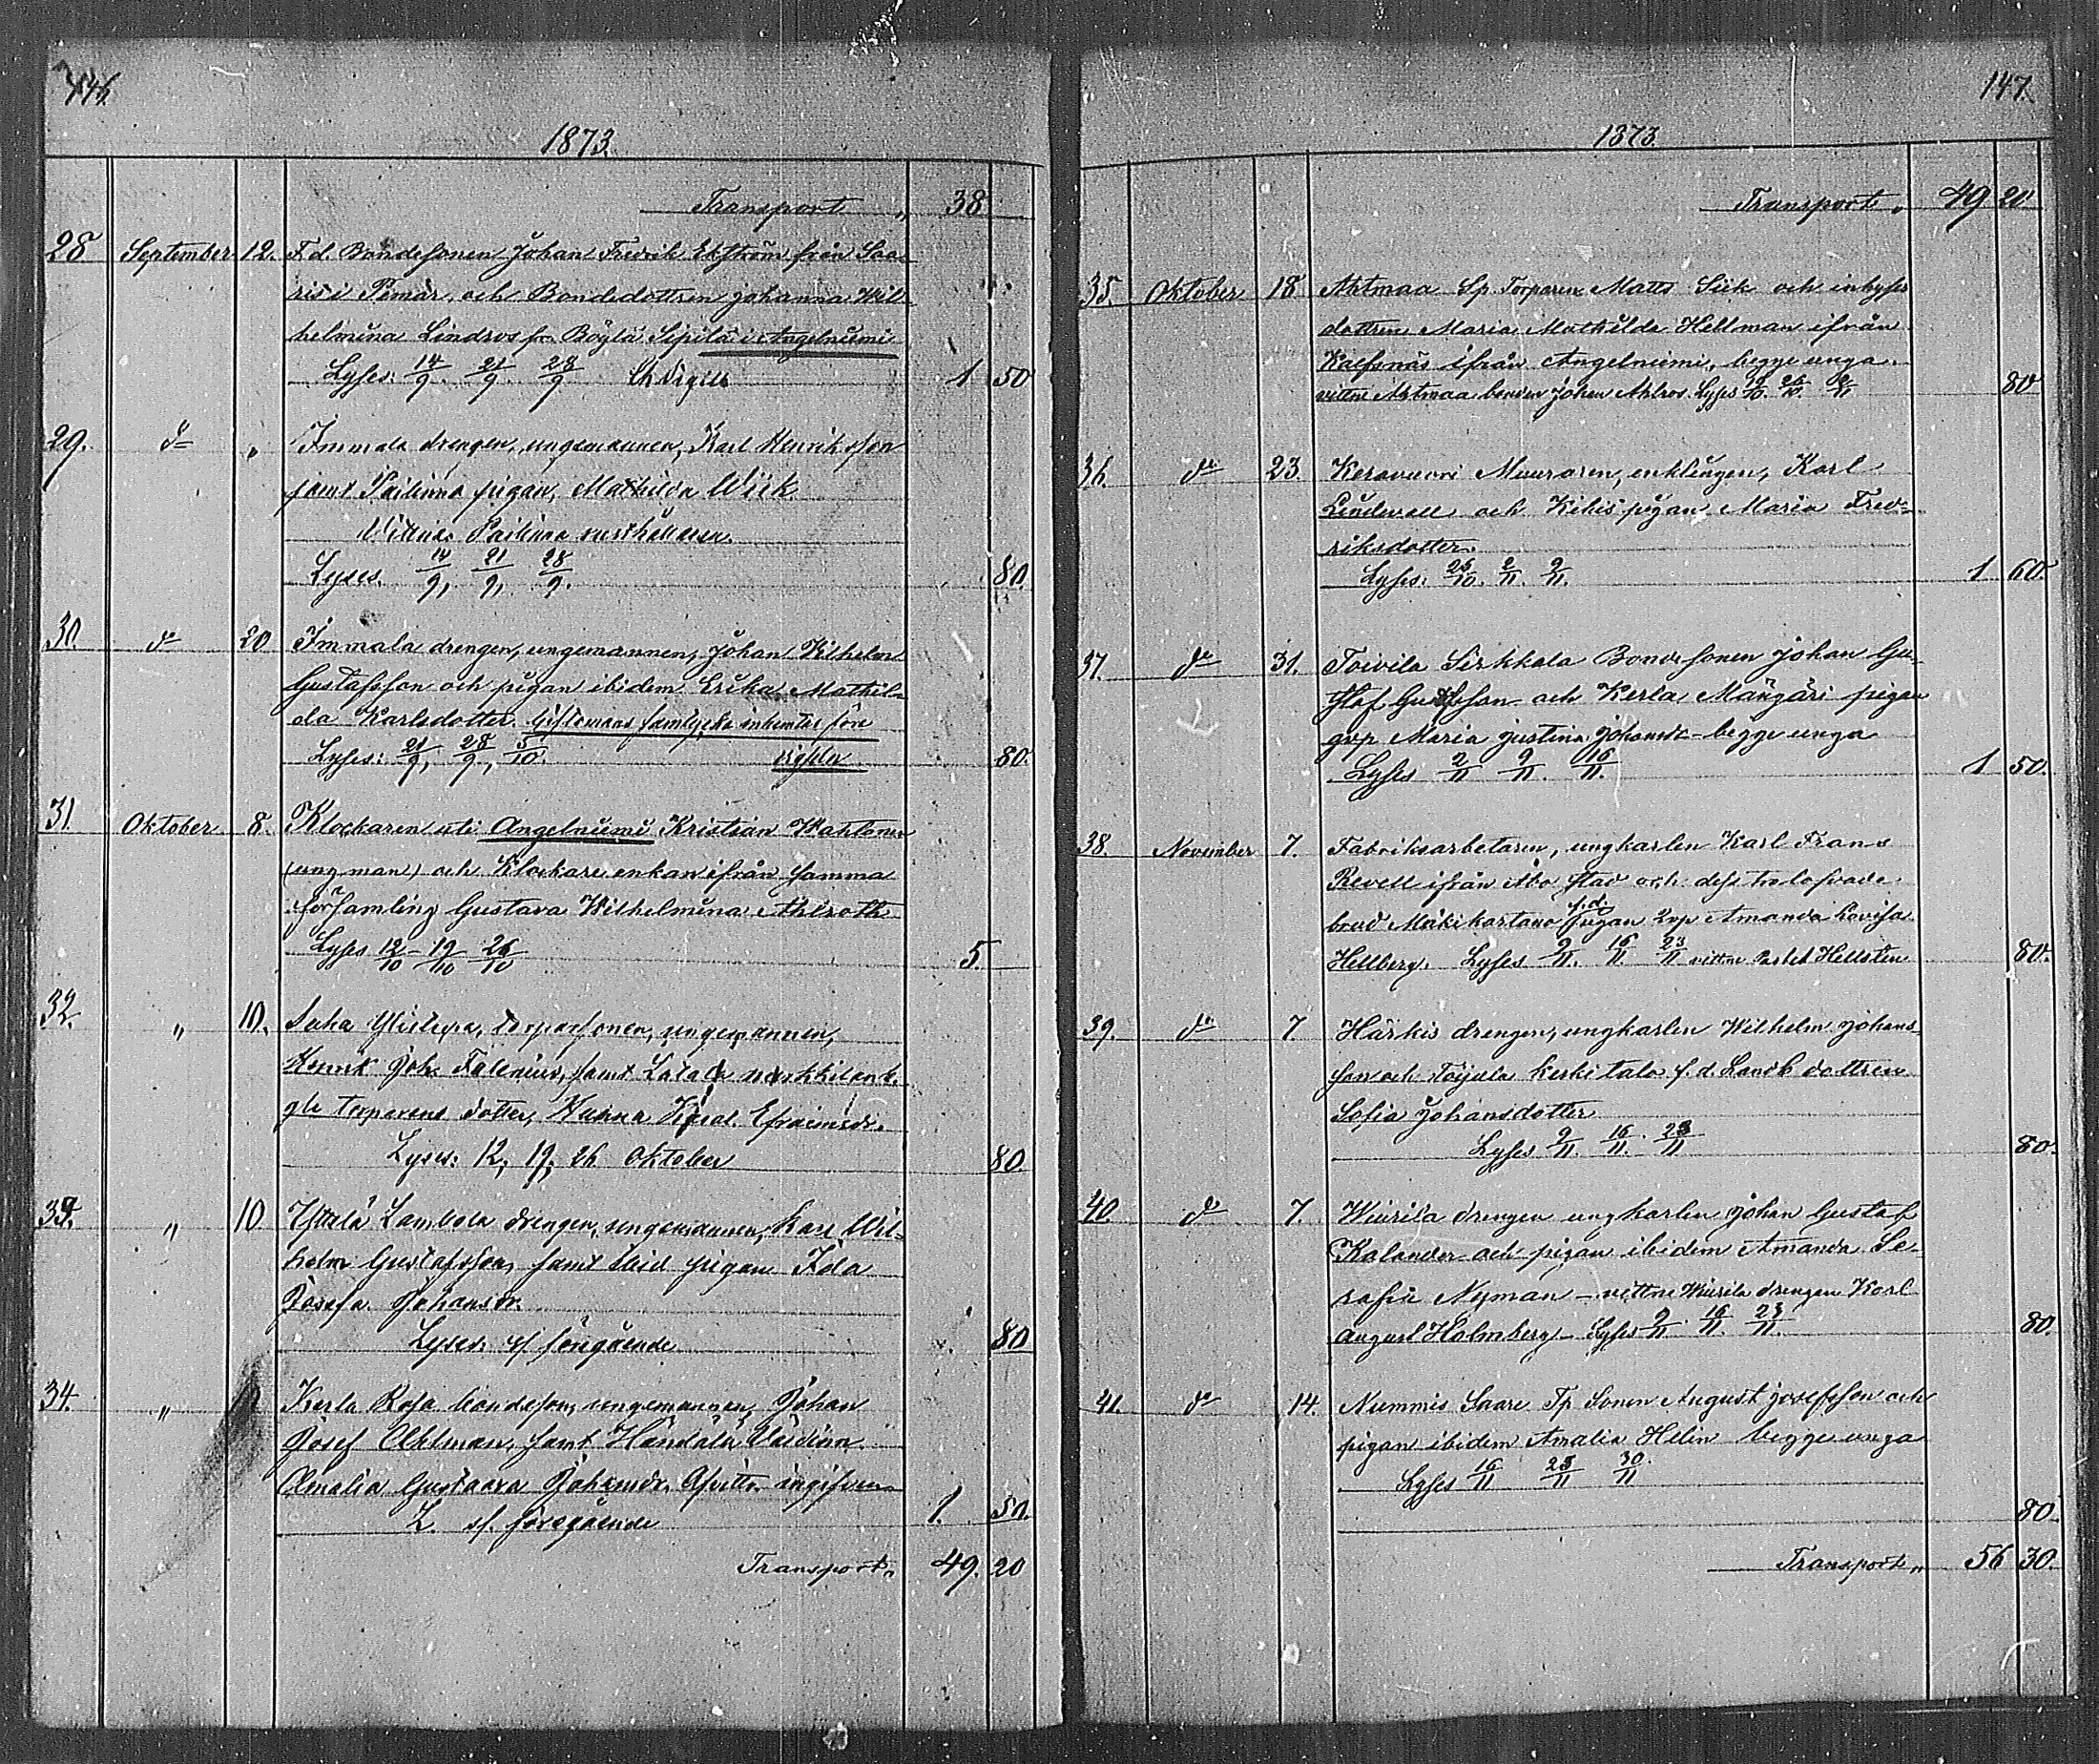 146.
1873.
Transport „ 38
28 September 12. F. d. Bondesonen Johan Fredrik Ekström från Saa-
ris i Pemar, och Bondedottren Johanna Wil-
helmina Lindros fr. Böylä Sipilä i Angelniemi
Lyses: 14/9. 21/9. 28/9 1 50
29. do „ Immala drengen, ungemannen, Karl Henriksson
samt Pailinna pigan, Mathilda Wiik
Vittne: Pailinna rusthållaren.
Lyses. 14/9, 21/9, 28/9. 80.
30. do 20 Immala drengen, ungemannen, Johan Vilhelm
Gustafsson och pigan ibidem Erika Mathil-
da Karlsdotter. Giftomans samtycke inhemtas före
vigseln
Lyses: 21/9, 28/9, 5/10. 80.
31. Oktober 8. Klockaren uti Angelniemi Kristian Wahlsten
(ungman) och Klockare enkan ifrån samma
församling Gustava Wilhelmina Ahlroth
Lyses 12/10 - 19/10 26/10 5.
32. „ 10. torparsonen, ungemannen,
Henrik Joh. Falenius, samt
torparens dotter, Efraimsdr.
Lyses: 12, 19, 26 Oktober 80.
33. „ 10 Yttelä Lambola drengen, ungemannen, Karl Wil-
helm Gustafsson, samt pigan Ida
Josefa Johansdr.
Lyses: s/ föregående 80
34. „ Kerla Rosa bondeson, ungemannen, Johan
Josef Ahlman, samt Händälä
Amalia Gustaava Johansdr.
L. s/. föregående 1. 50.
Transport „ 49. 20
147.
1873.
Transport „ 49 20
35. Oktober 18 Ahtmaa Sp. Torparen Matts Siik och inhyses
dottren Maria Mathilda Hellman ifrån
ifrån Angelniemi, begge unga.
vittne Ahtmaa bonden Johan Ahlros. Lyses 19/10. 26/10. 2/11 80
36. do 23. Keravuori Muuraren, enklingen, Karl
Lindevall och Kihis pigan Maria Fred-
riksdotter.
Lyses: 26/10. 2/11. 9/11. 1 60.
37. do 31. Toivila Sirkkala Bondesonen Johan Gu-
staf Gustafsson och Kerla Mängäri pigan
Maria Justina Johansdr - begge unga
Lyses 2/11 9/11. 16/11. 1 50.
38. November 7. Fabriksarbetaren, ungkarlen Karl Frans
Revell ifrån Åbo stad och dess trolofvade
brud Mäkikartano f. d. pigan Amanda Lovisa
Hellberg. Lyses 9/11. 16/11. 23/11 vittne Hellsten 80.
39. do 7. Härkis drengen, ungkarlen Wilhelm Johans-
son och Töijala Keskitalo f. d. Landb dottren
Sofia Johansdotter
Lyses 9/11 16/11. 23/11 80.
40. do 7. Wiurila drengen ungkarlen Johan Gustaf
Kalander och pigan ibidem Amanda Se-
rafia Nyman - vittne Wiurila drengen Karl
August Holmberg - Lyses 9/11. 16/11. 23/11. 80.
41. do 14. Nummis Saari Tp Sonen August Josefsson och
pigan ibidem Amalia Helin begge unga
Lyses 16/11 23/11 30/11.
80.
Transport „ 56 30.